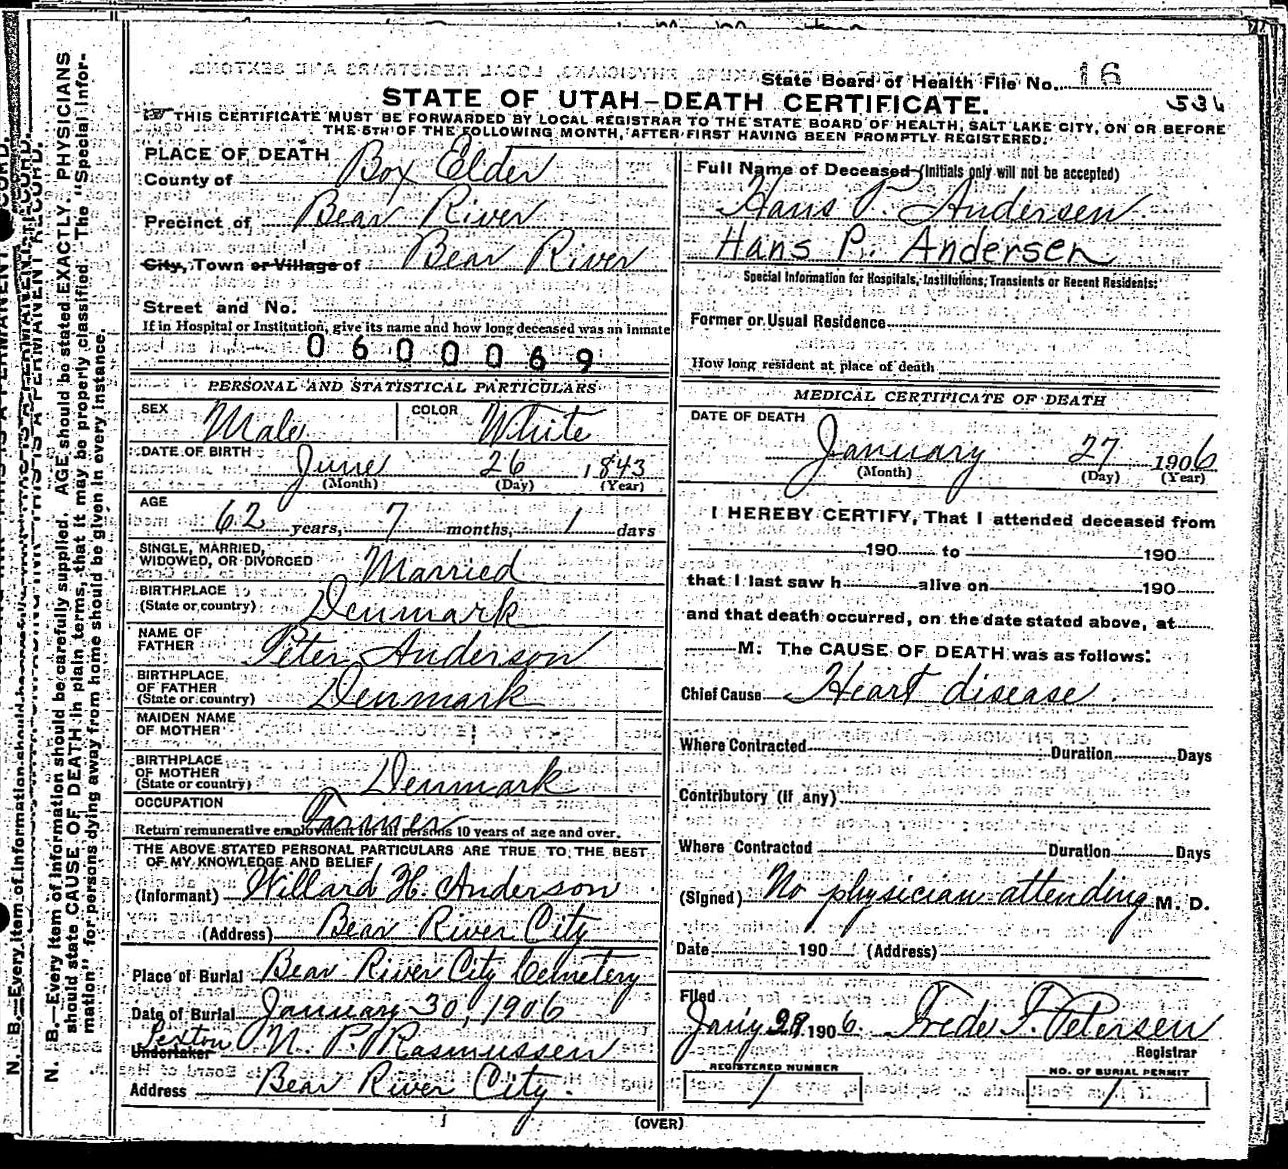 State Board of Health File No. 16
536
STATE OF UTAH—DEATH CERTIFICATE.
THIS CERTIFICATE MUST BE FORWARDED BY LOCAL REGISTRAR TO THE STATE BOARD OF HEALTH, SALT LAKE CITY, ON OR BEFORE
THE 5TH OF THE FOLLOWING MONTH, AFTER FIRST HAVING BEEN PROMPTLY REGISTERED.
PLACE OF DEATH
County of Box Elder
Precinct of Bear River
City, Town or Village of Bear River
Street and No.
If in Hospital or Institution, give its name and how long deceased was an inmate
0600069
PERSONAL AND STATISTICAL PARTICULARS
SEX Male COLOR White
DATE OF BIRTH June 26 1843
(Month) (Day) (Year)
AGE 62 years, 7 months, 1 days
SINGLE, MARRIED,
WIDOWED, OR DIVORCED Married
BIRTHPLACE
(State or country) Denmark
NAME OF
FATHER Peter Anderson
BIRTHPLACE
OF FATHER
(State or country) Denmark
MAIDEN NAME
OF MOTHER
BIRTHPLACE
OF MOTHER
(State or country) Denmark
OCCUPATION Farmer
Return remunerative employment for all persons 10 years of age and over.
THE ABOVE STATED PERSONAL PARTICULARS ARE TRUE TO THE BEST
OF MY KNOWLEDGE AND BELIEF
(Informant) Willard H. Anderson
(Address) Bear River City
Place of Burial Bear River City Cemetery
Date of Burial January 30, 1906
Sexton
Undertaker N. P. Rasmussen
Address Bear River City.
Full Name of Deceased (Initials only will not be accepted)
Hans P. Andersen
Hans P. Andersen
Special Information for Hospitals, Institutions, Transients or Recent Residents:
Former or Usual Residence
How long resident at place of death
MEDICAL CERTIFICATE OF DEATH
DATE OF DEATH
January 27 1906
(Month) (Day) (Year)
I HEREBY CERTIFY, That I attended deceased from
190 to 190
that I last saw h alive on 190
and that death occurred, on the date stated above, at
M. The CAUSE OF DEATH was as follows:
Chief Cause Heart disease.
Where Contracted Duration Days
Contributory (if any)
Where Contracted Duration Days
(Signed) No physician attending M. D.
Date 190 (Address)
Filed
Jan'y 29 1906. Frede F. Petersen
Registrar
REGISTERED NUMBER
1
NO. OF BURIAL PERMIT
1
(OVER)
N. B.—Every item of information should be carefully supplied. AGE should be stated EXACTLY. PHYSICIANS
should state CAUSE OF DEATH in plain terms, that it may be properly classified. The "Special Infor-
mation" for persons dying away from home should be given in every instance.